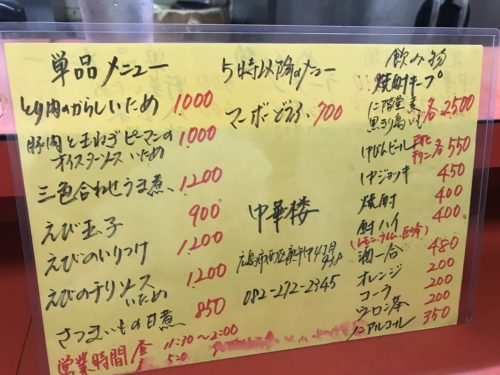 単品メニュー
とり肉のからしいため 1000
豚肉と玉ねぎピーマンの
オイスターソースいため 1000
三色合わせうま煮 1200
えび玉子 900
えびのいりつけ 1200
えびのチリソース
いため 1200
さつまいもの甘煮 850
営業時間 昼 11:30〜2:00
5:00
5時以降のメニュー
マーボどうふ 700
中華楼
広島市西区
082-272-2945
飲み物
焼酎キープ
二階堂
黒 各2500
びんビール
キリン 各550
中ジョッキ 450
焼酎 400
酎ハイ 400
(レモン、ライム、巨峰)
酒一合 480
オレンジ 200
コーラ 200
ウーロン茶 200
ノンアルコール 350